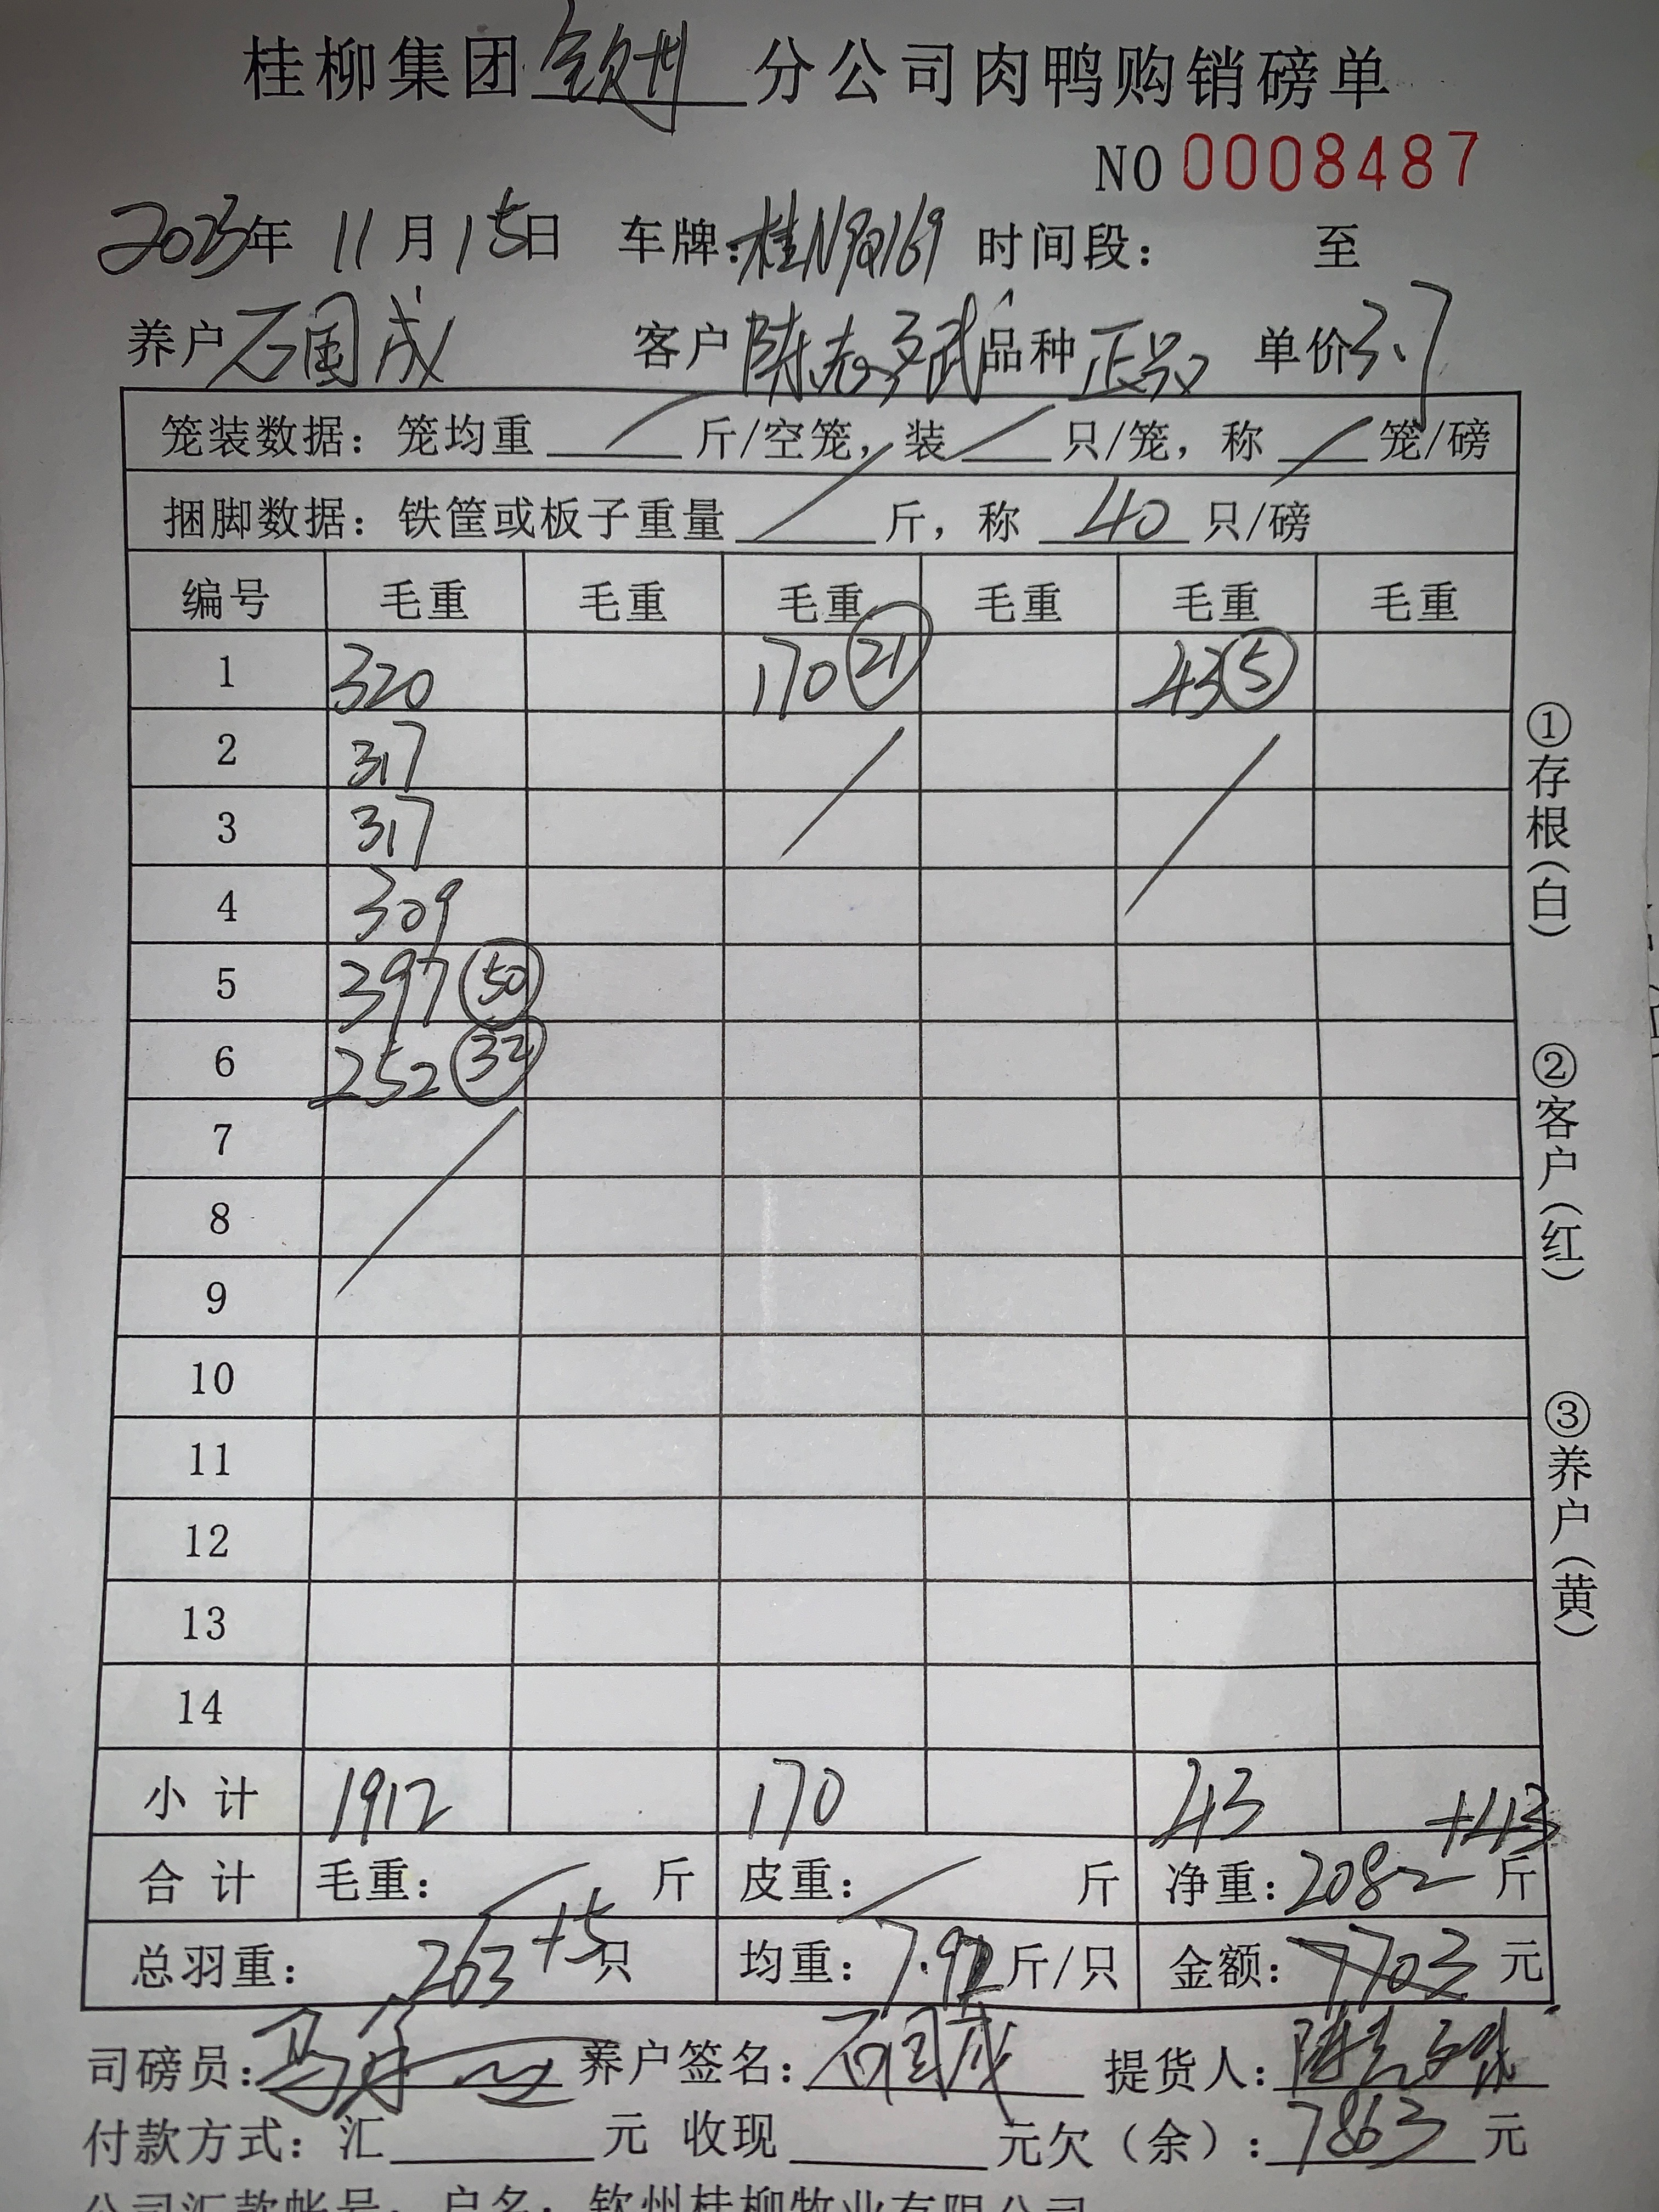 桂柳集团钦州分公司肉鸭购销磅单
NO 0008487
2023年 11月15日 车牌:桂N9Q169 时间段: 至
养户 石国成 客户 陈志武 品种 正品 单价3.7
笼装数据: 笼均重 / 斤/空笼, 装 / 只/笼, 称 / 笼/磅
捆脚数据: 铁筐或板子重量 / 斤, 称 40 只/磅
编号 毛重 毛重 毛重 毛重 毛重 毛重
1 320 170 (21) 43 (5)
2 317
3 317
4 309
5 397 (50)
6 252 (32)
7
8
9
10
11
12
13
14
小 计 1912 170 43 +43
合 计 毛重: / 斤 皮重: / 斤 净重: 2082 斤
总羽重: 263+5只 均重: 7.92斤/只 金额: 7703 元
司磅员: 养户签名: 石国成 提货人:
付款方式: 汇 元 收现 元欠(余): 7863 元
公司汇款帐号: 户名: 钦州桂柳牧业有限公司
①存根(白)
②客户(红)
③养户(黄)